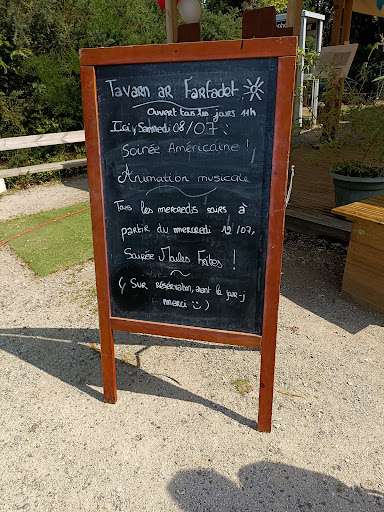 Tavarn ar Farfadet
Ouvert tous les jours 11h
Ici, Samedi 08/07 :
Soirée Américaine !
Animation musicale
Tous les mercredis soirs à
partir du mercredi 12/07,
Soirée Moules Frites !
Sur réservation, avant le jour-j
merci :)